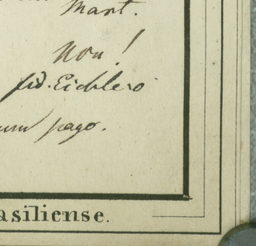 Mart.
Non!
fid. Eichlero
pago.
asiliense.